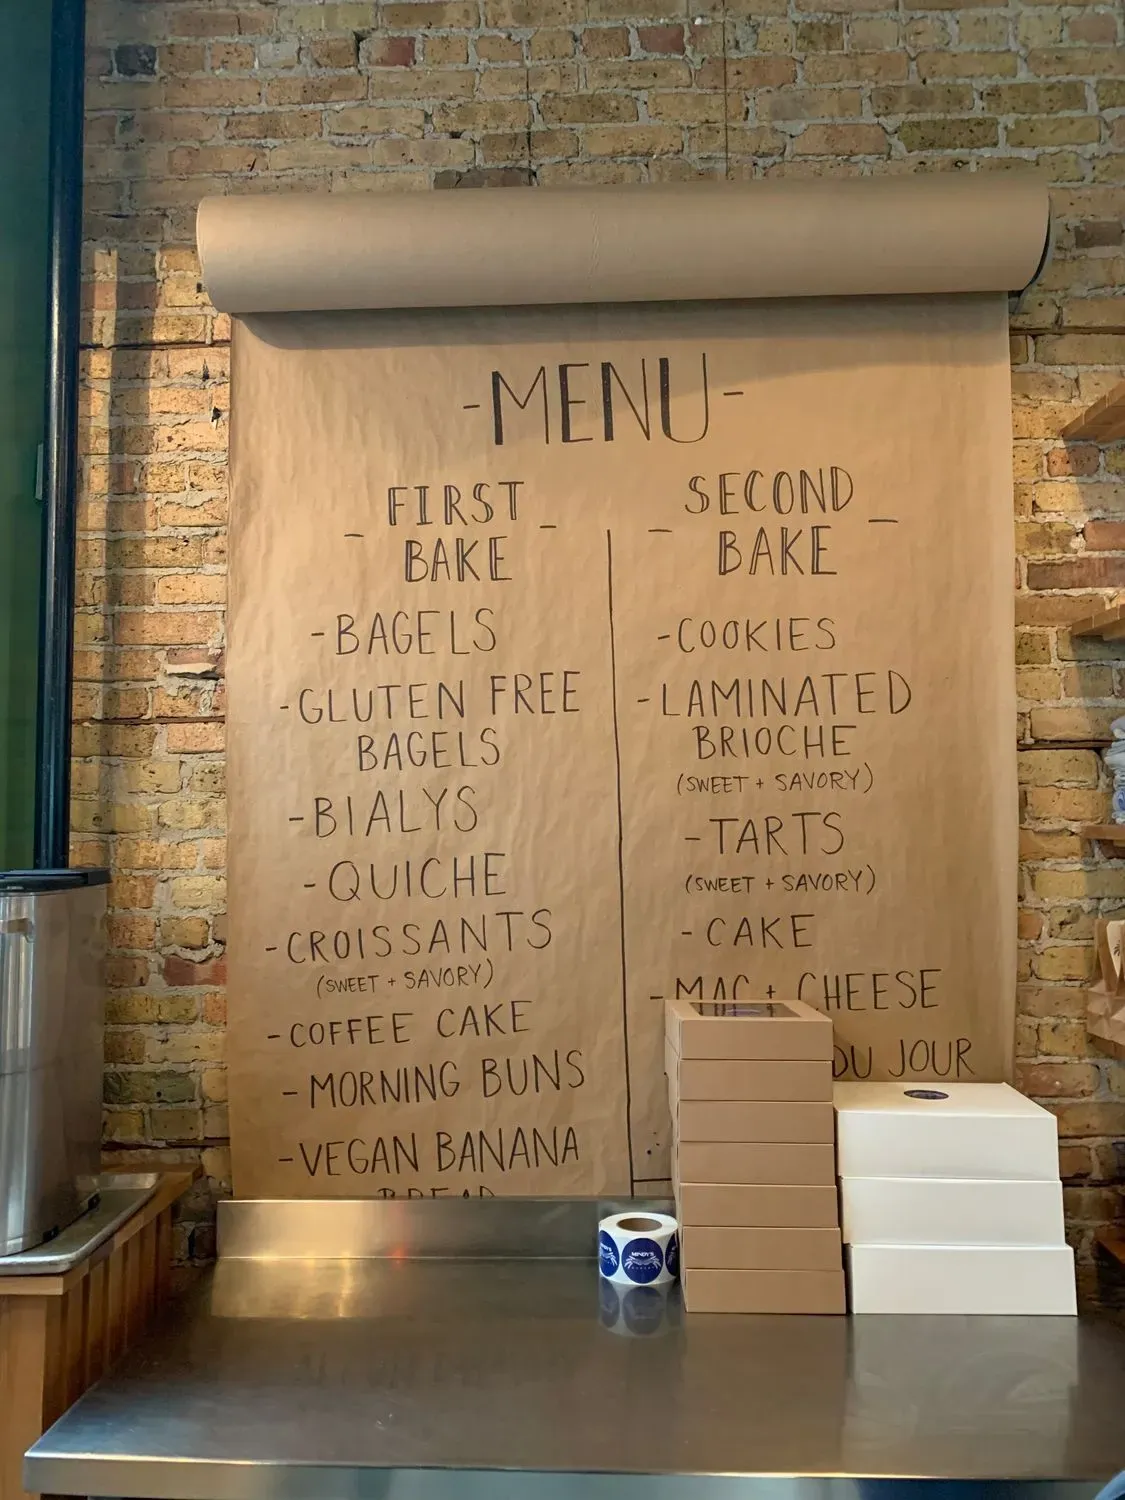 -MENU-
- FIRST -
BAKE
-BAGELS
-GLUTEN FREE
BAGELS
-BIALYS
-QUICHE
-CROISSANTS
(SWEET + SAVORY)
-COFFEE CAKE
-MORNING BUNS
-VEGAN BANANA
BREAD
- SECOND -
BAKE
-COOKIES
-LAMINATED
BRIOCHE
(SWEET + SAVORY)
-TARTS
(SWEET + SAVORY)
-CAKE
-MAC + CHEESE
DU JOUR
MINDY'S